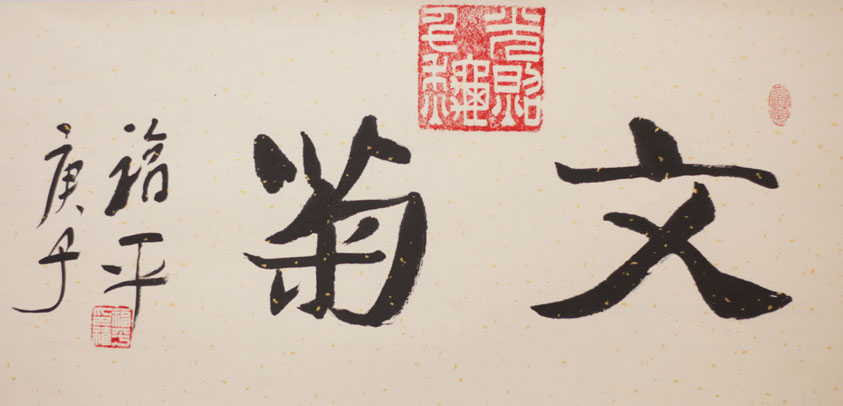 文菊
福平
庚子